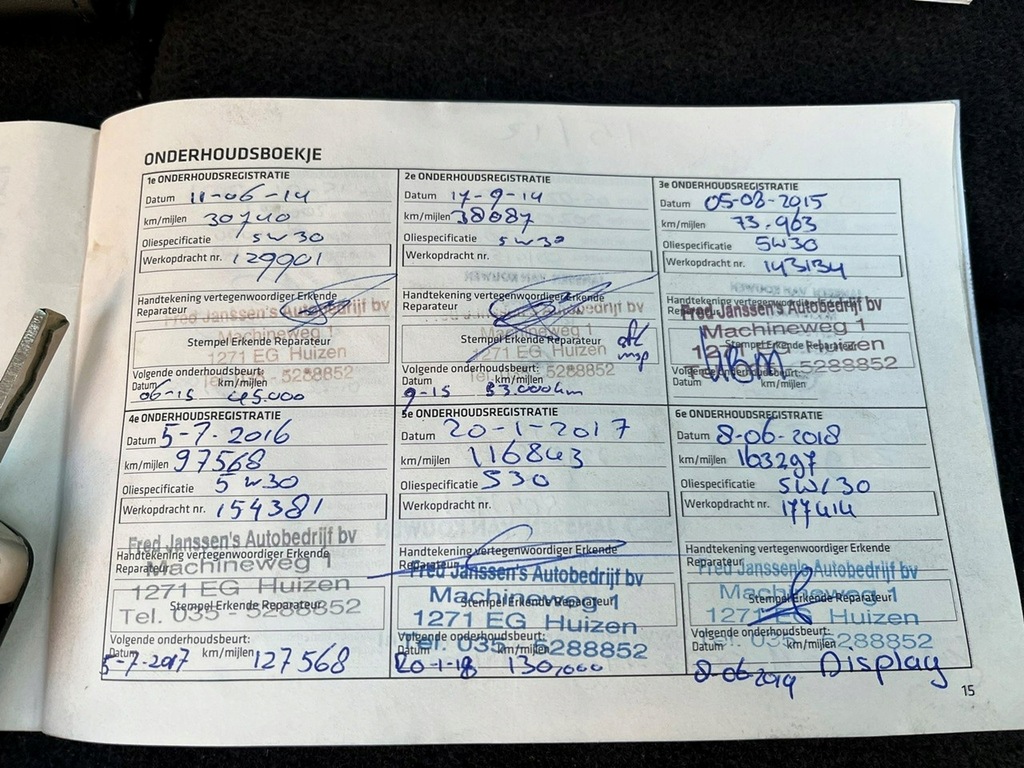 ONDERHOUDSBOEKJE
1e ONDERHOUDSREGISTRATIE
Datum 11-06-14
km/mijlen 30740
Oliespecificatie 5w30
Werkopdracht nr. 129901
Handtekening vertegenwoordiger Erkende
Reparateur
Fred Janssen's Autobedrijf bv
Machineweg 1
Stempel Erkende Reparateur
1271 EG Huizen
Volgende onderhoudsbeurt:
5288852
Datum km/mijlen
06-15 45.000
2e ONDERHOUDSREGISTRATIE
Datum 17-9-14
km/mijlen 38087
Oliespecificatie 5w30
Werkopdracht nr.
Handtekening vertegenwoordiger Erkende
Reparateur
Fred Janssen's Autobedrijf bv
Machineweg 1
Stempel Erkende Reparateur
1271 EG Huizen
Volgende onderhoudsbeurt:
5288852
Datum km/mijlen
9-15 53.000km
3e ONDERHOUDSREGISTRATIE
Datum 05-08-2015
km/mijlen 73.963
Oliespecificatie 5W30
Werkopdracht nr. 143134
Fred Janssen's Autobedrijf bv
Machineweg 1
Stempel Erkende Reparateur
1271 EG Huizen
5288852
Volgende onderhoudsbeurt:
Datum km/mijlen
4e ONDERHOUDSREGISTRATIE
Datum 5-7-2016
km/mijlen 97568
Oliespecificatie 5w30
Werkopdracht nr. 154381
Fred Janssen's Autobedrijf bv
Handtekening vertegenwoordiger Erkende
Reparateur
Machineweg 1
1271 EG Huizen
Stempel Erkende Reparateur
Tel. 035 - 5288852
Volgende onderhoudsbeurt:
Datum km/mijlen
5-7-2017 127568
5e ONDERHOUDSREGISTRATIE
Datum 20-1-2017
km/mijlen 116843
Oliespecificatie 530
Werkopdracht nr.
Handtekening vertegenwoordiger Erkende
Reparateur
Fred Janssen's Autobedrijf bv
Machineweg 1
Stempel Erkende Reparateur
1271 EG Huizen
Volgende onderhoudsbeurt:
Tel. 035 - 5288852
Datum km/mijlen
20-1-18 130,000
6e ONDERHOUDSREGISTRATIE
Datum 8-06-2018
km/mijlen 163297
Oliespecificatie 5W/30
Werkopdracht nr. 177414
Handtekening vertegenwoordiger Erkende
Reparateur
Fred Janssen's Autobedrijf bv
Machineweg 1
Stempel Erkende Reparateur
1271 EG Huizen
Volgende onderhoudsbeurt:
Tel. 035 - 5288852
Datum km/mijlen
8-06-2019 Display
15